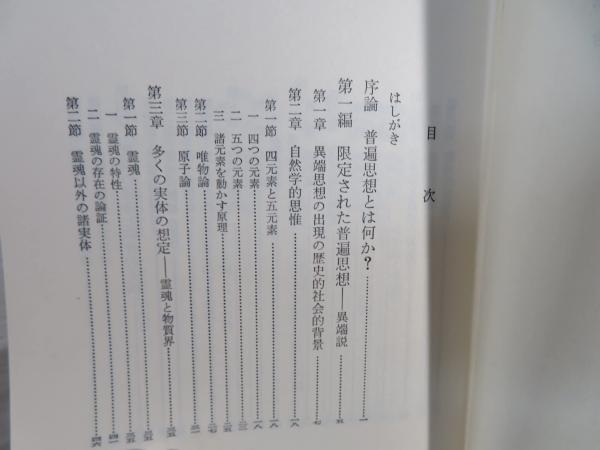 目次
はしがき
序論 普遍思想とは何か？……一
第一編 限定された普遍思想――異端説……五
第一章 異端思想の出現の歴史的社会的背景……七
第二章 自然学的思惟……一八
第一節 四元素と五元素……一八
一 四つの元素……一八
二 五つの元素……二三
三 諸元素を動かす原理……二五
第二節 唯物論……二七
第三節 原子論……三一
第三章 多くの実体の想定――霊魂と物質界……三五
第一節 霊魂……三五
一 霊魂の特性……三五
二 霊魂の存在の論証……四一
第二節 霊魂以外の諸実体……四六